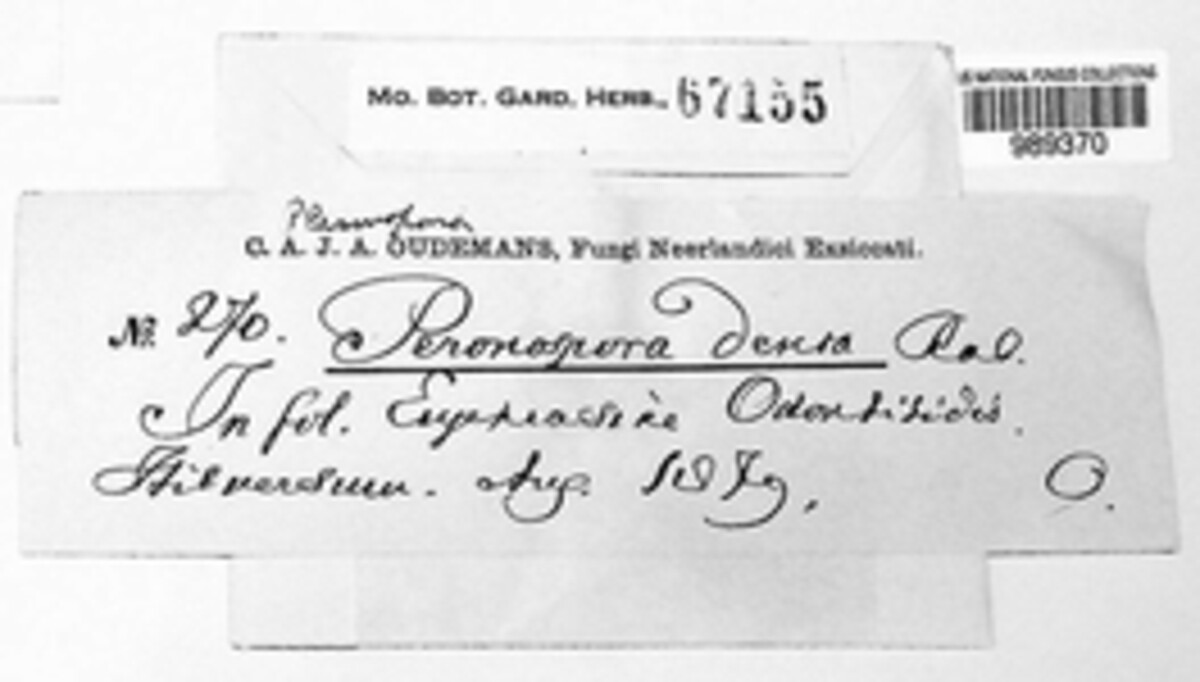 MO. BOT. GARD. HERB., 67155
US NATIONAL FUNGUS COLLECTIONS
989370
Plasmopara
C. A. J. A. OUDEMANS, Fungi Neerlandici Exsiccati.
№. 270. Peronospora densa Rab.
In fol. Euphrasiae Odontitidis.
Hilversum. Aug. 1879, O.